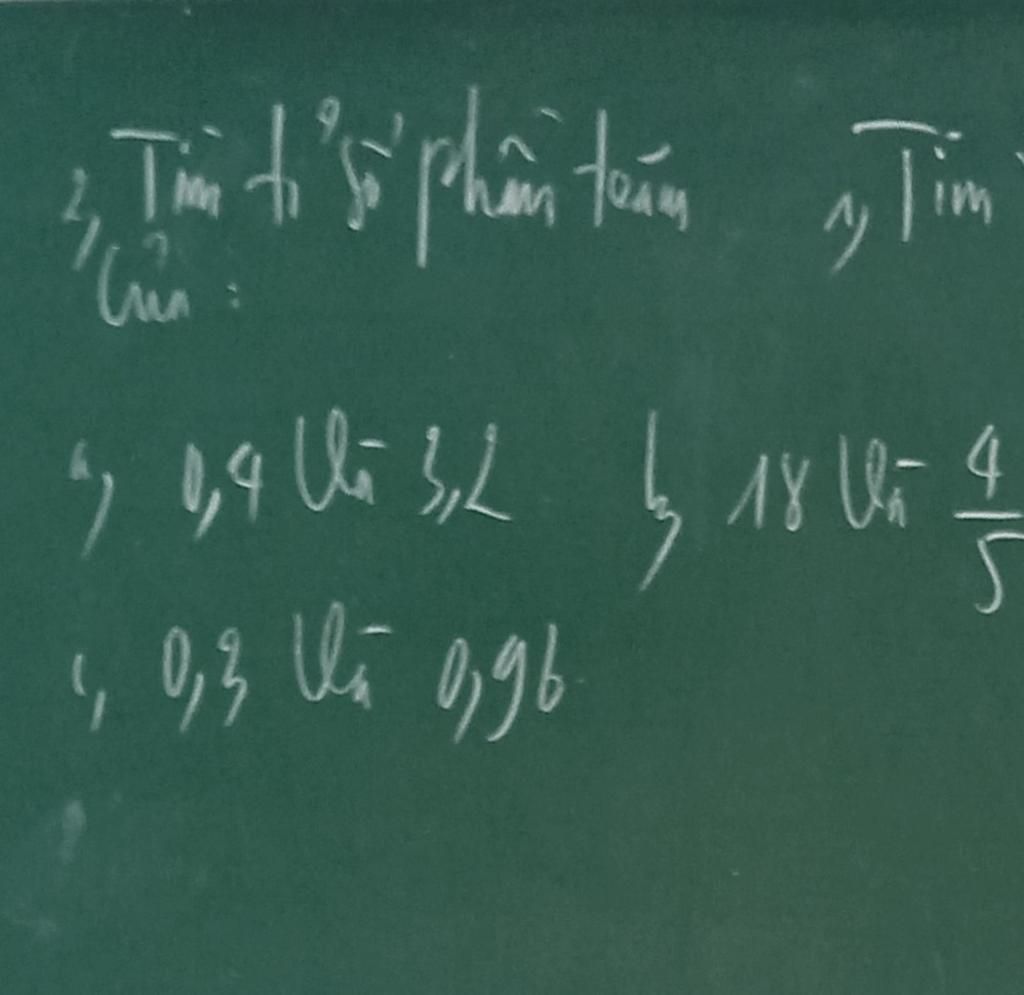 2, Tìm tỉ số phần trăm 1, Tìm
của:
a, 0,4 và 3,2 b, 18 và 4/5
c, 0,3 và 0,96